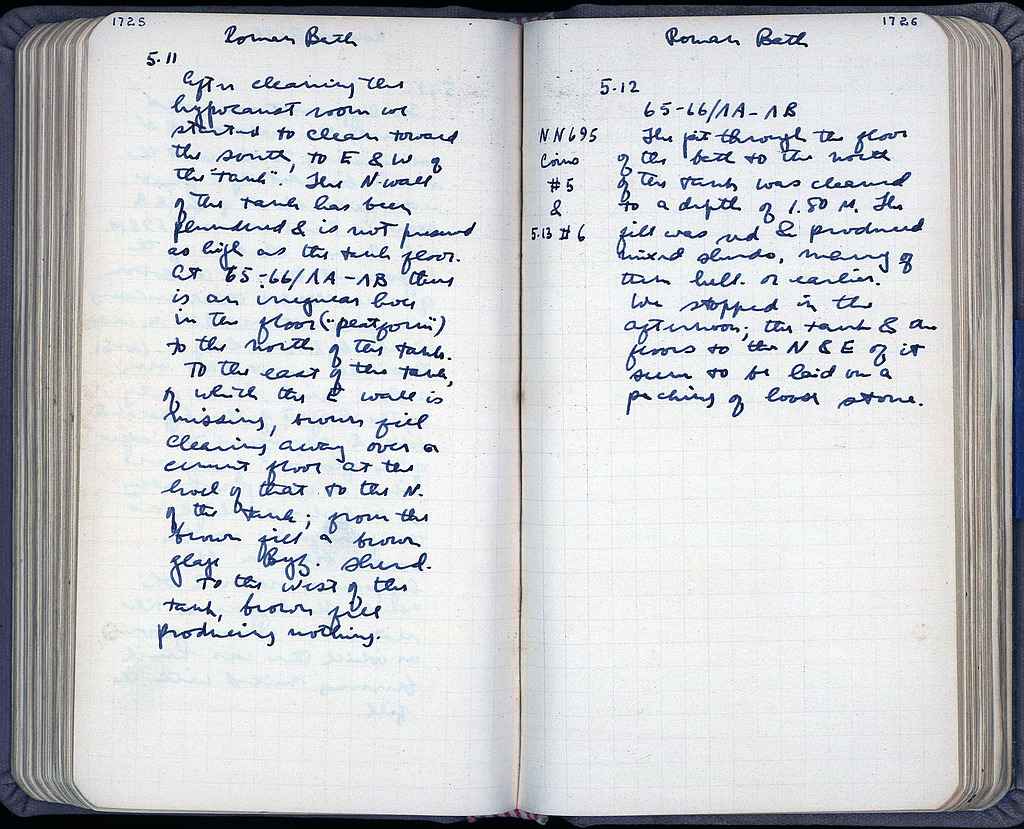 1725
Roman Bath
5.11
After cleaning the
hypocaust room we
started to clean toward
the south, to E & W of
the "tank". The N wall
of the tank has been
plundered & is not preserved
as high as the tank floor.
At 65-66/ΛA-ΛB there
is an irregular hole
in the floor ("platform")
to the north of the tank.
To the east of the tank,
of which the E wall is
missing, brown fill
clearing away over a
cement floor at the
level of that to the N.
of the tank; from the
brown fill a brown
glaze Byz. sherd.
To the west of the
tank, brown fill
producing nothing.
1726
Roman Bath
5.12
65-66/ΛA-ΛB
NN695
Coins
#5
&
5.13 #6
The pit through the floor
of the bath to the north
of the tank was cleaned
to a depth of 1.50 M. The
fill was red & produced
mixed sherds, many of
them hell. or earlier.
We stopped in the
afternoon; the tank & the
floors to the N & E of it
seem to be laid on a
packing of loose stone.